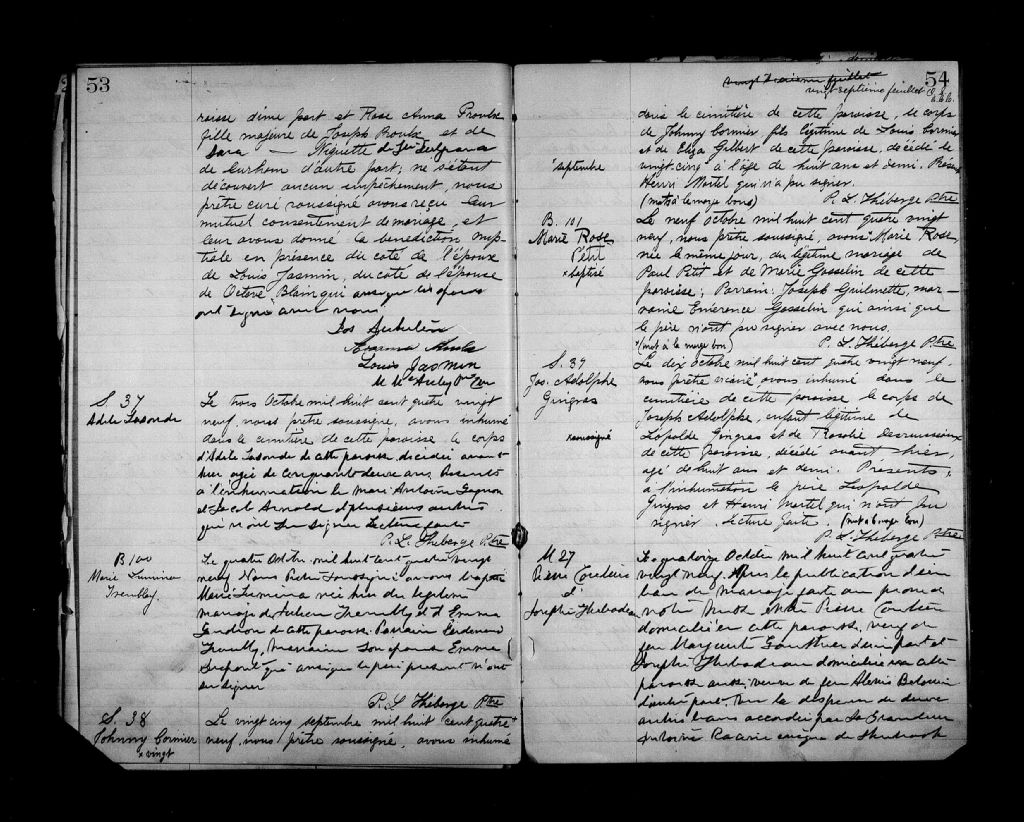 53
roisse d'une part et Rose Anna Proulx
fille majeure de Joseph Proulx et de
de Durham d'autre part; ne s'étant
découvert aucun empêchement, nous
prêtre curé soussigné avons reçu leur
mutuel consentement de mariage, et
leur avons donné la bénédiction nup-
tiale en présence du côté de l'époux
de Louis Jasmin, du côté de l'épouse
de Octave Blain qui ainsi que les époux
ont signé avec nous.
Jos
Louis Jasmin
S. 37
Adele Lasonde
Le trois Octobre mil huit cent quatre vingt
neuf, nous prêtre soussigné, avons inhumé
dans le cimetière de cette paroisse le corps
d'Adele Lasonde de cette paroisse, décédée avant
hier agée de cinquante deux ans. Présents
à l'inhumation le mari Antoine Gagnon
et Jacob Arnold et plusieurs autres
qui n'ont su signer Lecture faite
P. L. Théberge Ptre
B 100
Marie
Tremblay
Le quatre Octobre mil huit cent quatre vingt
neuf Nous Prêtre soussigné avons baptisé
Marie née hier du légitime
mariage de Julien Tremblay et d'Emma
de cette paroisse. Parrain Ferdinand
Tremblay, marraine son épouse Emma
qui ainsi que le père présent n'ont
su signer
P. L. Théberge Ptre
S. 38
Johnny Cormier
x vingt
Le vingt cinq septembre mil huit cent quatre x
neuf, nous prêtre soussigné, avons inhumé
54
vingt septième feuillet
dans le cimetière de cette paroisse, le corps
de Johnny Cormier fils légitime de Louis Cormier
et de Eliza Gilbert de cette paroisse, décédé le
septembre
vingt cinq à l'âge de huit ans et demi. Présent
Henri Martel qui n'a pu signer.
(mot à la marge bons) P. L. Théberge Ptre
B. 101
Marie Rose
Petit
x baptisé
Le neuf octobre mil huit cent quatre vingt
neuf, nous prêtre soussigné, avons x Marie Rose,
née le même jour, du légitime mariage de
Paul Petit et de Marie Gosselin de cette
paroisse; Parrain: Joseph Guilmette, mar-
raine Emérence Gosselin qui ainsi que
le père n'ont pu signer avec nous.
x (mot à la marge bon) P. L. Théberge Ptre
S. 39
Jos. Adolphe
Gingras
x soussigné
Le dix octobre mil huit cent quatre vingt neuf
nous prêtre vicaire x avons inhumé dans le
cimetière de cette paroisse le corps de
Joseph Adolphe, enfant légitime de
Léopolde Gingras et de Rosalie Desruisseaux
de cette paroisse, décédé avant hier,
agé de huit ans et demi. Présents
à l'inhumation le père Léopolde
Gingras et Henri Martel qui n'ont pu
signer. Lecture faite. (mot à la marge bon)
P. L. Théberge Ptre
M 27
Pierre
et
Josephte Thibodeau
Le quatorze Octobre mil huit cent quatre
vingt neuf. Après la publication d'un
ban de mariage faite au prône de
notre Messe entre Pierre
domicilié en cette paroisse, veuf de
feu Marguerite Gauthier d'une part et
Josephte Thibodeau domiciliée en cette
paroisse aussi, veuve de feu Alexis
d'autre part. Vu la dispense de deux
autres bans accordée par Sa Grandeur
Antoine Racine évêque de Sherbrooke